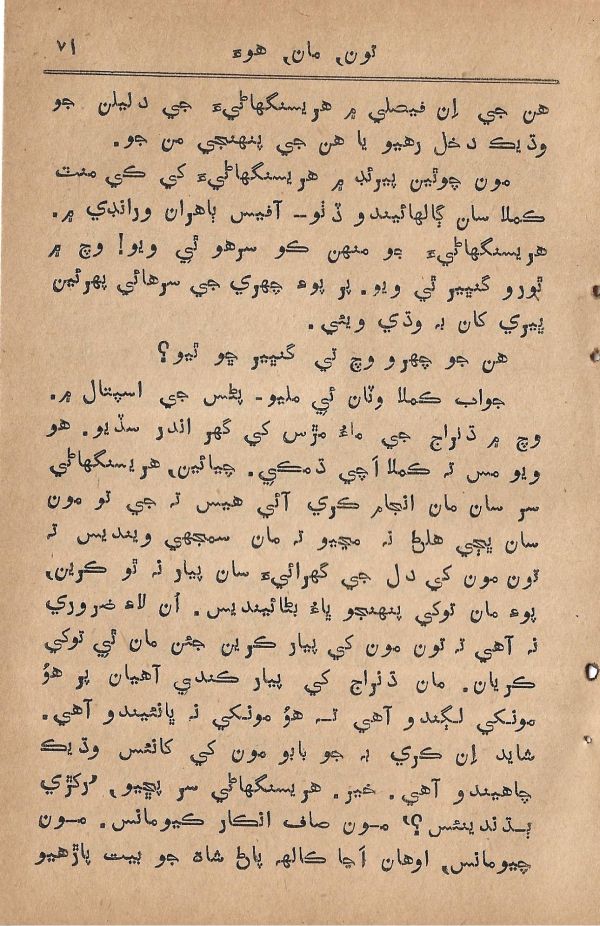 تون، مان، هوءَ ۷۱
هن جي اِن فيصلي ۾ هريسنگهاڻيءَ جي دليلن جو
وڌيڪ دخل رهيو يا هن جي پنهنجي من جو.
مون چوٿين پيرئڊ ۾ هريسنگهاڻيءَ کي ڪي منٽ
ڪملا سان ڳالهائيندو ڏٺو– آفيس ٻاهران ورانڊي ۾.
هريسنگهاڻيءَ جو منهن ڪو سرهو ٿي ويو! وچ ۾
ٿورو گنڀير ٿي ويو. پر پوءِ چهري جي سرهائي پهرئين
ڀيري کان بہ وڌي ويئي.
هن جو چهرو وچ تي گنڀير ڇو ٿيو؟
جواب ڪملا وٽان ئي مليو– پڻس جي اسپتال ۾.
وچ ۾ ڌنراج جي ماءُ مڙس کي گهر اندر سڏيو. هو
ويو مس تہ ڪملا اَچي ڌمڪي. چيائين، هريسنگهاڻي
سر سان مان انجام ڪري آئي هيس تہ جي تو مون
سان ڀڄي هلڻ نہ مڃيو تہ مان سمجهي وينديس تہ
تون مون کي دل جي گهرائيءَ سان پيار نہ ٿو ڪرين،
پوءِ مان توکي پنهنجو ڀاءُ بڻائينديس. اُن لاءِ ضروري
نہ آهي تہ تون مون کي پيار ڪرين جئن مان ئي توکي
ڪريان. مان ڌنراج کي پيار ڪندي آهيان پر هوُ
مونکي لڳندو آهي تہ هوُ مونکي نہ ڀانئيندو آهي.
شايد اِن ڪري بہ جو بابو مون کي کانئس وڌيڪ
چاهيندو آهي. خير. هريسنگهاڻي سر پڇيو، ”رکڙي
ٻڌندينئس؟“ مون صاف انڪار ڪيومانس. مون
چيومانس، اوهان اَڃا ڪالهہ پاڻ شاهہ جو بيت پاڙهيو